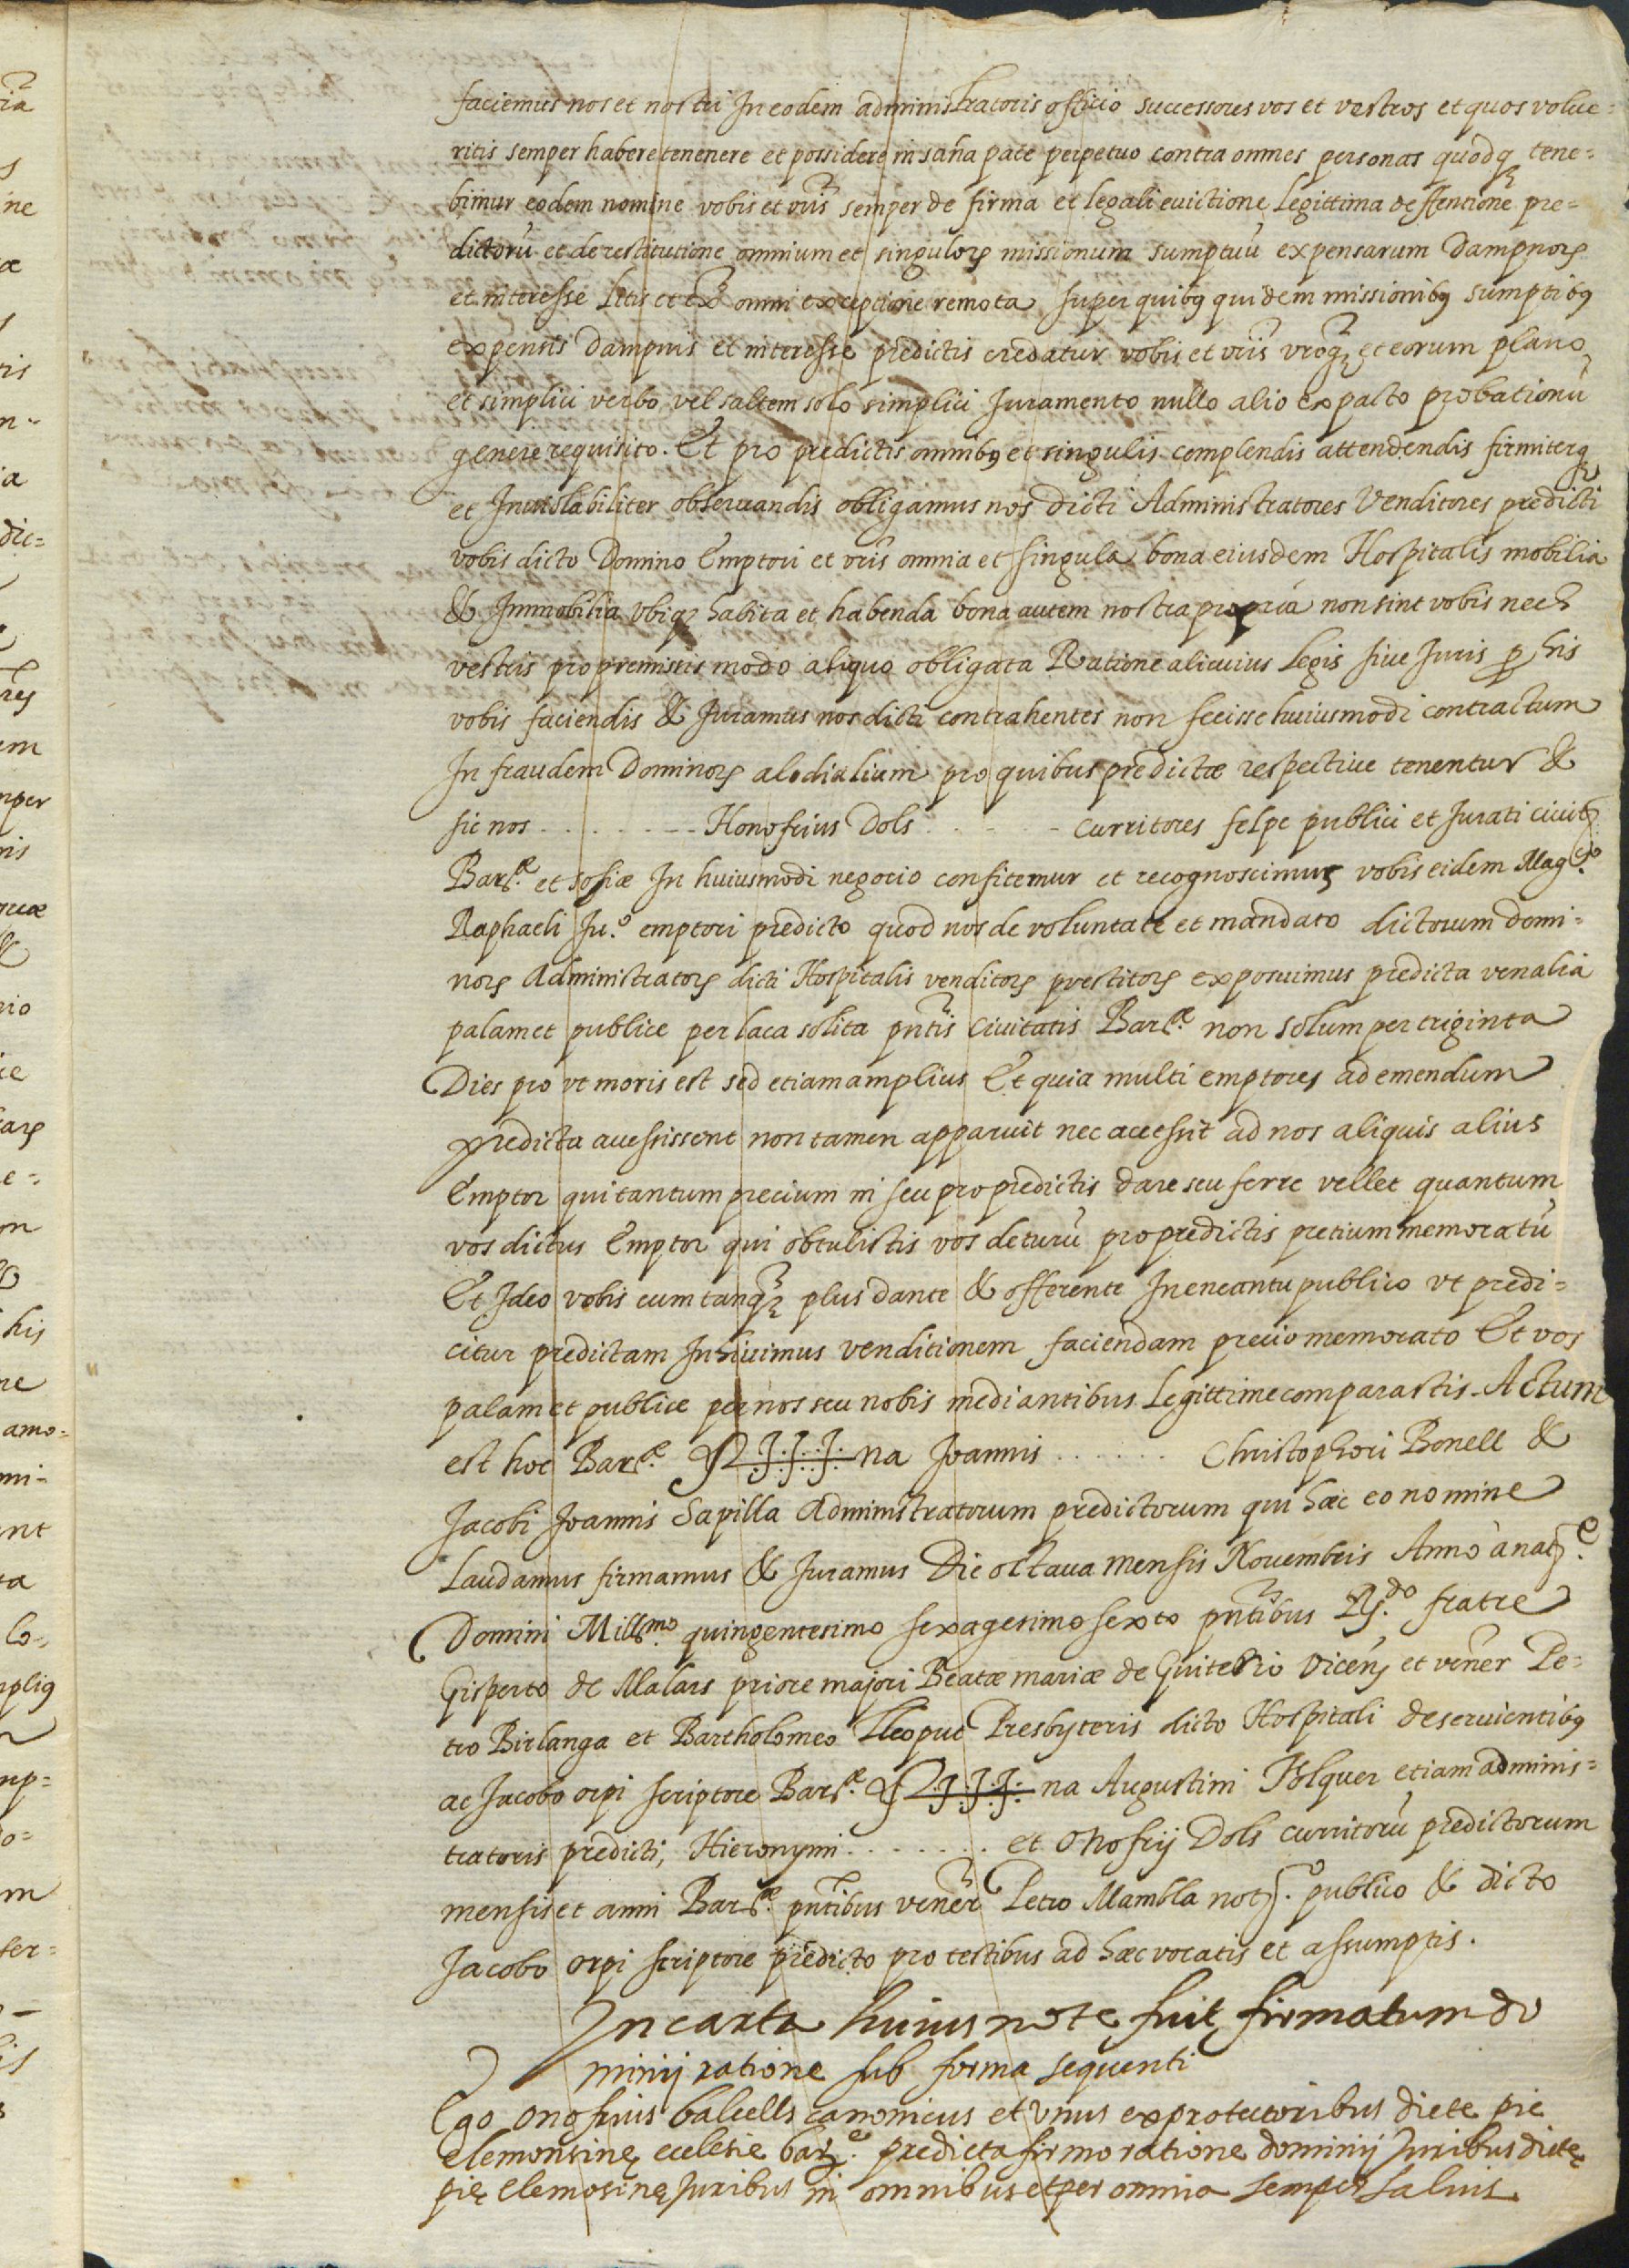 faciemus nos et nostri In eodem administratoris officio successores vos et vestros et quos volue=
ritis semper habere tenenere et possidere in sana pace perpetuo contra omnes personas quodq tene=
bimur eodem nomine vobis et vris semper de firma et legali euictione Legittima deffentione pre=
dictorū et de restitutione omnium et singulorꝝ missionum sumptuū expensarum dampnorꝝ
et interesse Litis et exᵃ omni exceptione remota super quibꝰ quidem missionibꝰ sumptibꝰ
expensis dampnis et interesse predictis credatur vobis et vris vroqꝫ et eorum plano
et simplici verbo vel saltem solo simplici Juramento nullo alio ex pacto probationū
genere requisito. Et pro predictis omnibꝰ et singulis complendis attendendis firmiterq
et Inuiolabiliter obseruandis obligamus nos dicti Administratores Venditores predicti
vobis dicto Domino Emptori et vris omnia et singula bona eiusdem Hospitalis mobilia
& Immobilia vbiqꝫ habita et habenda bona autem nostra propria non sint vobis nec
vestris pro premissis modo aliquo obligata Ratione alicuius Legis siue Juris ꝓ his
vobis faciendis & Juramus nos dicti contrahentes non fecisse huiusmodi contractum
In fraudem Dominorꝝ alodialium pro quibus predictæ respectiue tenentur &
sic nos . . . . . . . Honofrius Dols . . . . . curritores felpe publici et Jurati ciuitꝭ
Barᵉ. et sosiæ In huiusmodi negocio confitemur et recognoscimus vobis eidem Magᶜᵒ.
Raphaeli Ju.ᵒ emptori predicto quod nos de voluntate et mandato dictorum domi=
norꝝ Administratorꝝ dicti Hospitalis venditorꝝ prestitorꝝ exposuimus predicta venalia
palam et publice per laca solita pntis ciuitatis Barᵉ. non solum per triginta
Dies pro vt moris est sed etiam amplius Et quia multi emptores ad emendum
predicta auessissent non tamen apparuit nec accessit ad nos aliquis alius
Emptor qui tantum precium in seu pro predictis dare seu ferre vellet quantum
vos dictus Emptor qui obtulistis vos deturū pro predictis pretium memoratū
Et Ideo vobis cum tanqꝫ plus dante & offerente In encantu publico vt predi=
citur predictam Inhiuimus venditionem faciendam precio memorato Et vos
palam et publice per nos seu nobis mediantibus Legittime comparastis. Actum
est hoc Barᵉ. S J.J.J. na Joannis . . . . . . Christophori Bonell &
Jacobi Joannis Sapilla Administratorum predictorum qui hæc eo nomine
Laudamus firmamus & Juramus Die octaua mensis Nouembris Anno à natᵉ.
Domini Millᵐᵒ quingentesimo sexagesimo sexto pntibus Rᵈᵒ. fratre
Gisperto de Malars priore majori Beatæ mariæ de Guiterio Vicenꝭ et vener Pe=
tro Birlanga et Bartholomeo Lleopuc Presbyteris dicto Hospitali deseruientibꝰ
ac Jacobo orpi scriptore Barᵉ. S J.J.J. na Augustini Polquer etiam adminis=
tratoris predicti, Hieronymi . . . . . . . et Onofrij Dols curritorū predictorum
mensis et anni Barᵉ. pntibus vener Petro Mambla notᵒ. publico & dicto
Jacobo orpi scriptore predicto pro testibus ad hæc vocatis et assumptis.
In carta huius note fuit firmatum do
minij ratione sub forma sequenti
Ego onofrius balcells canonicus et vnus ex protectoribus dicte pie
elemonsinę ecclesie barᵉ. predicta firmo ratione dominij Juribus dictę
pię Elemosinę Juribus in omnibus et per omnia semper saluis.